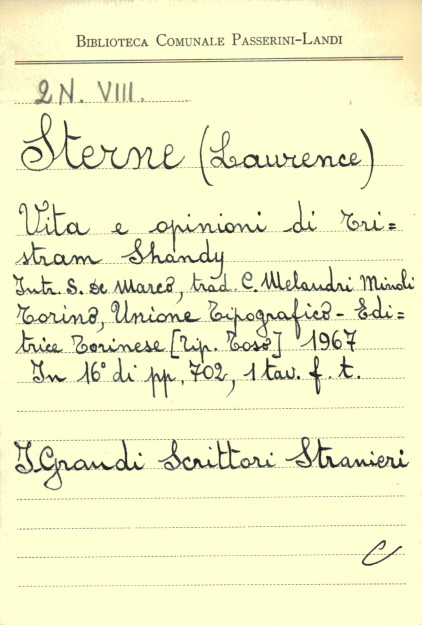 BIBLIOTECA COMUNALE PASSERINI-LANDI
2N. VIII.
Sterne (Laurence)
Vita e opinioni di Tri=
stram Shandy
Intr. S. De Marco, trad. C. Melandri Minoli
Torino, Unione Tipografico-Edi=
trice Torinese [Tip. Toso] 1967
In 16° di pp. 702, 1 tav. f. t.
I Grandi Scrittori Stranieri
C